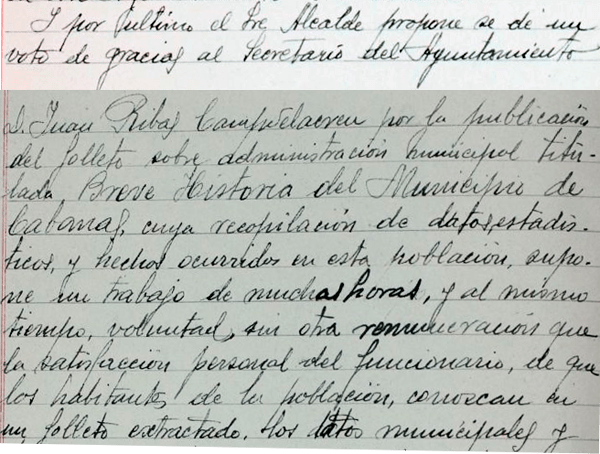 Y por último el Sre Alcalde propone se dé un
voto de gracias al Secretario del Ayuntamiento
D. Juan Ribas por la publicación
del folleto sobre administración municipal titu-
lada Breve Historia del Municipio de
Cabanas, cuya recopilación de datos, estadis-
ticos, y hechos ocurridos en esta población, supo-
ne un trabajo de muchas horas, y al mismo
tiempo, voluntad, sin otra remuneración que
la satisfacción personal del funcionario, de que
los habitantes de la población, conoscan en
un folleto extractado, los datos municipales y